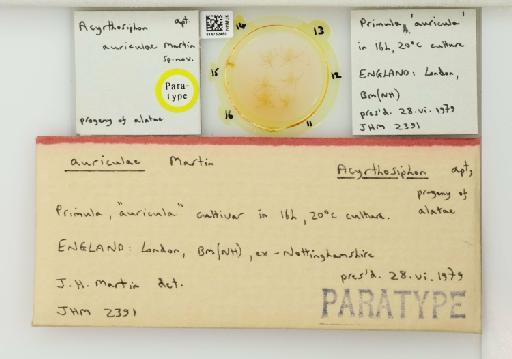 Acyrthosiphon apt.
auriculae Martin
sp. nov.
Para-
type
progeny of alatae
14
13
15
12
16
11
Primula, "auricula"
in 16h, 20°C culture
ENGLAND: London,
Bm(NH)
pres'd. 28.vi.1979
JHM 2391
auriculae Martin
Acyrthosiphon apt,
progeny of
alatae
Primula, "auricula" cultivar in 16h, 20°C culture.
ENGLAND: London, Bm(NH), ex-Nottinghamshire
pres'd. 28.vi.1979
J.H. Martin det.
JHM 2391
PARATYPE